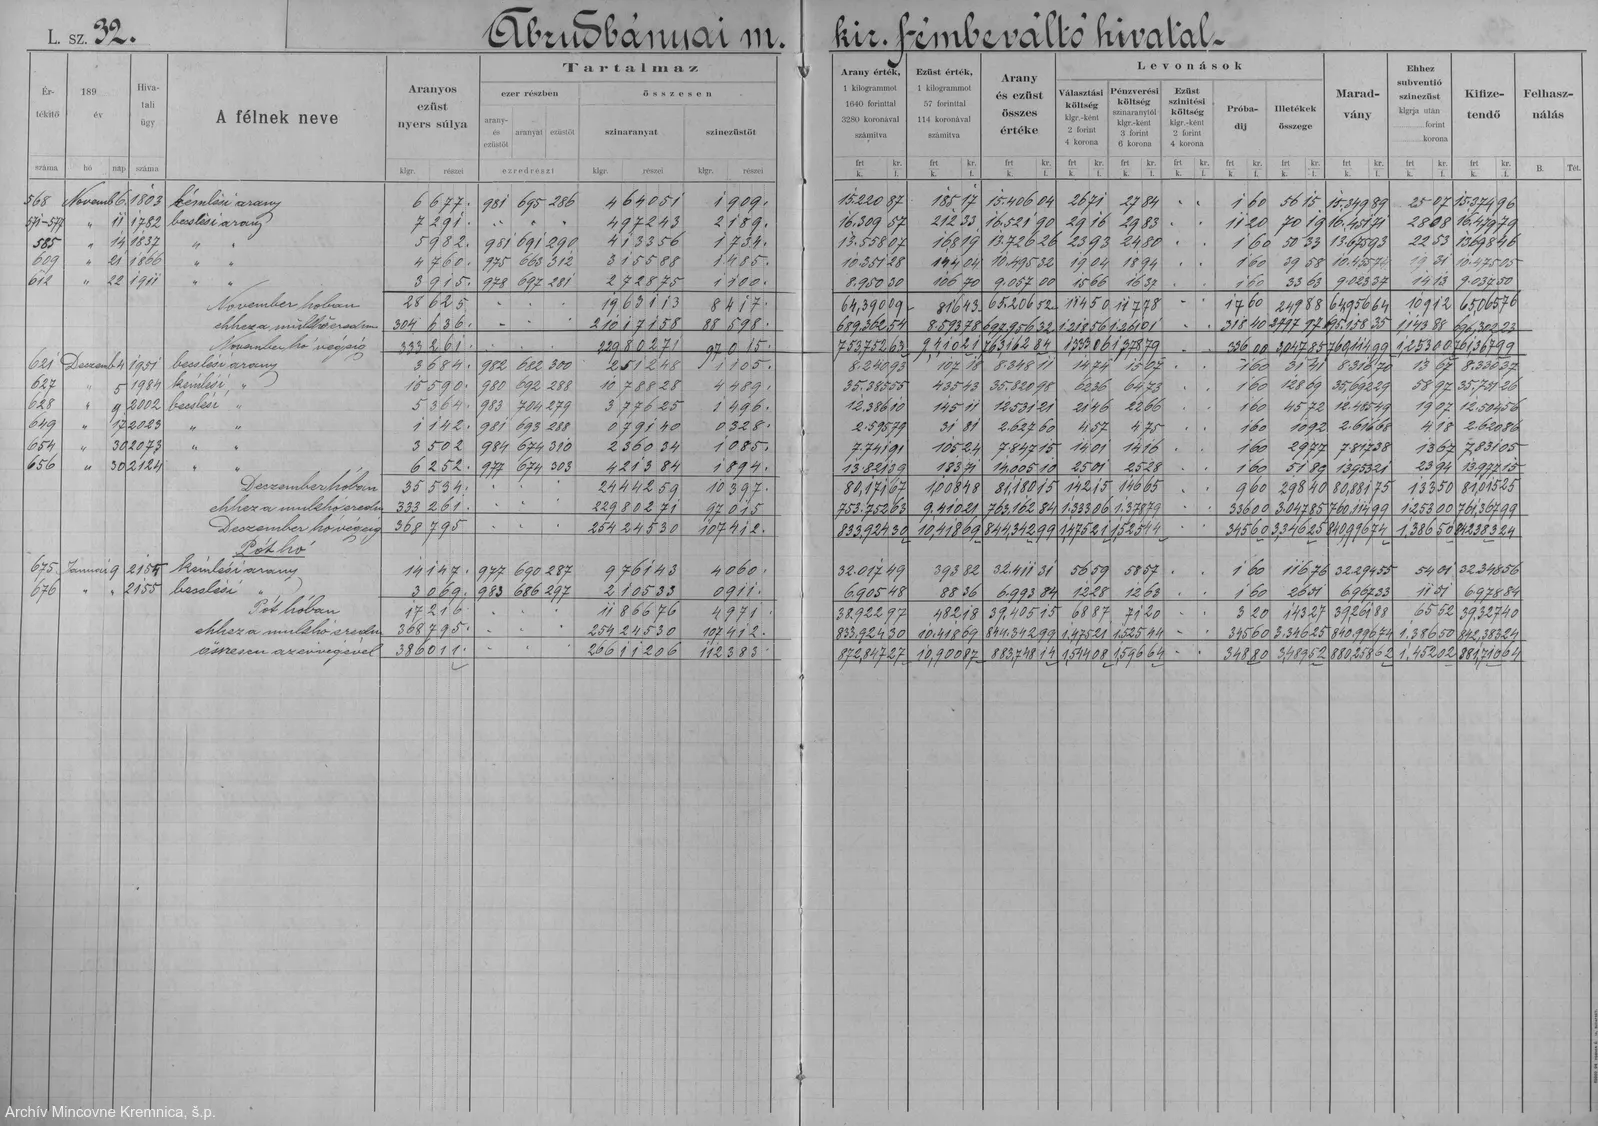 L. sz. 32.
Abrudbányai m. kir. fémbeváltó hivatal.
Ér-tékitő száma
189 év hó nap
Hiva-tali ügy száma
A félnek neve
Aranyos ezüst nyers súlya
klgr. részei
Tartalmaz
ezer részben
arany- és ezüstöt aranyat ezüstöt
ezredrészt
összesen
színaranyat színezüstöt
klgr. részei klgr. részei
Arany érték, 1 kilogrammot 1640 forinttal 3280 koronával számitva
Ezüst érték, 1 kilogrammot 57 forinttal 114 koronával számitva
Arany és ezüst összes értéke
Levonások
Választási költség klgr.-ként 2 forint 4 korona
Pénzverési költség színaranytól klgr.-ként 3 forint 6 korona
Ezüst színitési költség klgr.-ként 2 forint 4 korona
Próba-dij
Illetékek összege
Marad-vány
Ehhez subventió színezüst klgrja után forint korona
Kifize-tendő
Felhasz-nálás
frt k. kr. f.
B. Tét.
568 Novemb 6 1803 kémlési arany 6 677 981 695 286 4 64051 1 909
571-577 " 11 1782 beesési arany 7 291 " " " 4 97243 2 189
585 " 14 1837 " " 5 982 981 691 290 4 13356 1 734
609 " 21 1866 " " 4 760 975 663 312 3 15588 1 485
612 " 22 1911 " " 3 915 978 697 281 2 72875 1 100
November hóban 28 625 19 63113 8 417
ehhez a múlthó eredm 304 636 210 17158 88 598
November hó végéig 333 261 229 80271 97 015
621 Deczemb 4 1951 3 684 982 682 300 2 51248 1 105
627 " 5 1984 kémlési " 15 590 980 692 288 10 78828 4 489
628 " 9 2002 " 5 364 983 704 279 3 77625 1 496
649 " 17 2023 " " 1 142 981 693 288 0 79140 0 328
654 " 30 2073 " " 3 502 984 674 310 2 36034 1 085
656 " 30 2124 " " 6 252 977 674 303 4 21384 1 894
Deczember hóban 35 534 24 44259 10 397
ehhez a múlthó eredm 333 261 229 80271 97 015
Deczember hó végéig 368 795 254 24530 107 412
Pót hó
675 Január 9 2154 kémlési arany 14 147 977 690 287 9 76143 4 060
676 " " 2155 " 3 069 983 686 297 2 10533 0 911
Pót hóban 17 216 11 86676 4 971
ehhez a múlthó eredm 368 795 254 24530 107 412
összesen az év végével 386 011 266 11206 112 383
15.220 87 185 17 15.406 04 26 71 27 84 1 60 56 15 15.349 89 25 07 15.374 96
16.309 57 212 33 16.521 90 29 16 29 83 11 20 70 19 16.451 71 28 08 16.479 79
13.558 07 168 19 13.726 26 23 93 24 80 1 60 50 33 13.675 93 22 53 13.698 46
10.351 28 144 04 10.495 32 19 04 18 94 1 60 39 58 10.455 74 19 31 10.475 05
8.950 30 106 70 9.057 00 15 66 16 37 1 60 33 63 9.023 37 14 13 9.037 50
64,390 09 816 43 65.206 52 114 50 117 78 17 60 249 88 64,956 64 109 12 65,065 76
689,362 54 8.593 78 697,956 32 1.218 56 1.261 01 318 40 2797 97 695.158 35 1143 88 696,302 23
753,752 63 9,410 21 763,162 84 1333 06 1,378 79 336 00 3,047 85 760,114 99 1,253 00 761,367 99
8.240 93 107 18 8.348 11 14 74 15 07 1 60 31 41 8.316 70 13 67 8.330 37
35.385 55 435 43 35.820 98 62 36 64 73 1 60 128 69 35.692 29 58 97 35.751 26
12.386 10 145 11 12.531 21 21 46 22 66 1 60 45 72 12.485 49 19 07 12.504 56
2.595 79 31 81 2.627 60 4 57 4 75 1 60 10 92 2.616 68 4 18 2.620 86
7.741 91 105 24 7.847 15 14 01 14 16 1 60 29 77 7.817 38 13 67 7.831 05
13.821 39 183 71 14.005 10 25 01 25 28 1 60 51 80 13.953 21 23 94 13.977 15
80,171 67 1,008 48 81,180 15 142 15 146 65 9 60 298 40 80,881 75 133 50 81,015 25
753.752 63 9,410 21 763,162 84 1.333 06 1.378 79 336 00 3.047 85 760.114 99 1.253 00 761,367 99
833,924 30 10,418 69 844,342 99 1,475 21 1,525 44 345 60 3,346 25 840,996 74 1,386 50 842,383 24
32.017 49 393 82 32.411 31 56 59 58 57 1 60 116 76 32.294 55 54 01 32.348 56
6.905 48 88 36 6.993 84 12 28 12 63 1 60 26 51 6.967 33 11 51 6.978 84
38,922 97 482 18 39,405 15 68 87 71 20 3 20 143 27 39,261 88 65 52 39,327 40
833,924 30 10.418 69 844.342 99 1.475 21 1.525 44 345 60 3.346 25 840.996 74 1.386 50 842,383 24
872,847 27 10,900 87 883,748 14 1,544 08 1,596 64 348 80 3,489 52 880,258 62 1,452 02 881,710 64
Archív Mincovne Kremnica, š.p.